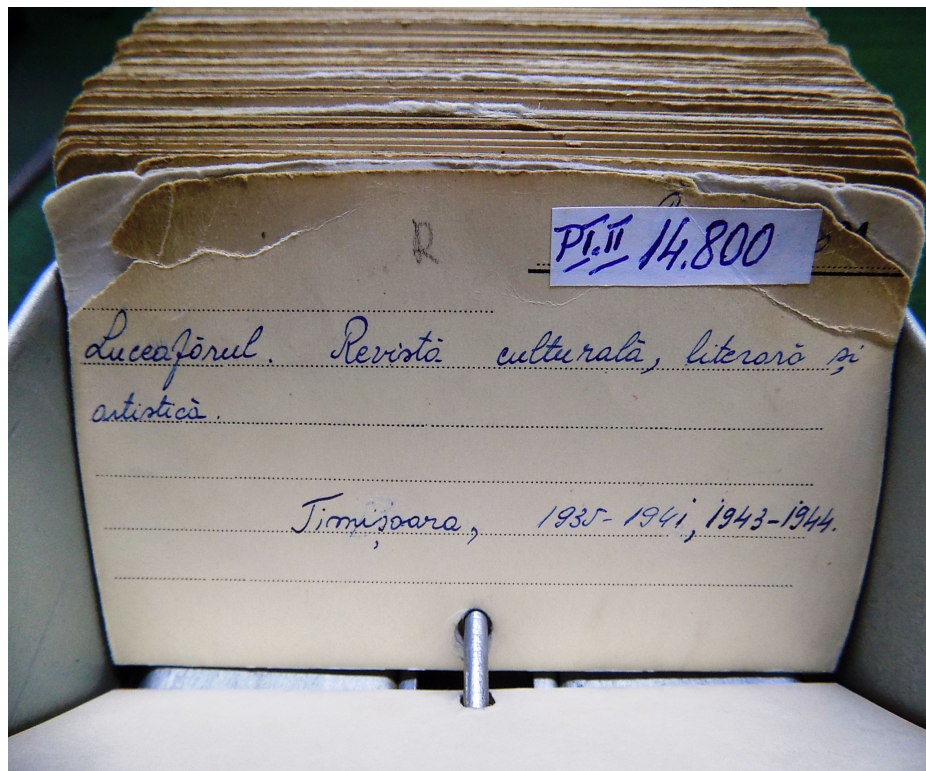 R
PI.II 14.800
Luceafărul. Revistă culturală, literară și
artistică.
Timișoara, 1935-1941, 1943-1944.